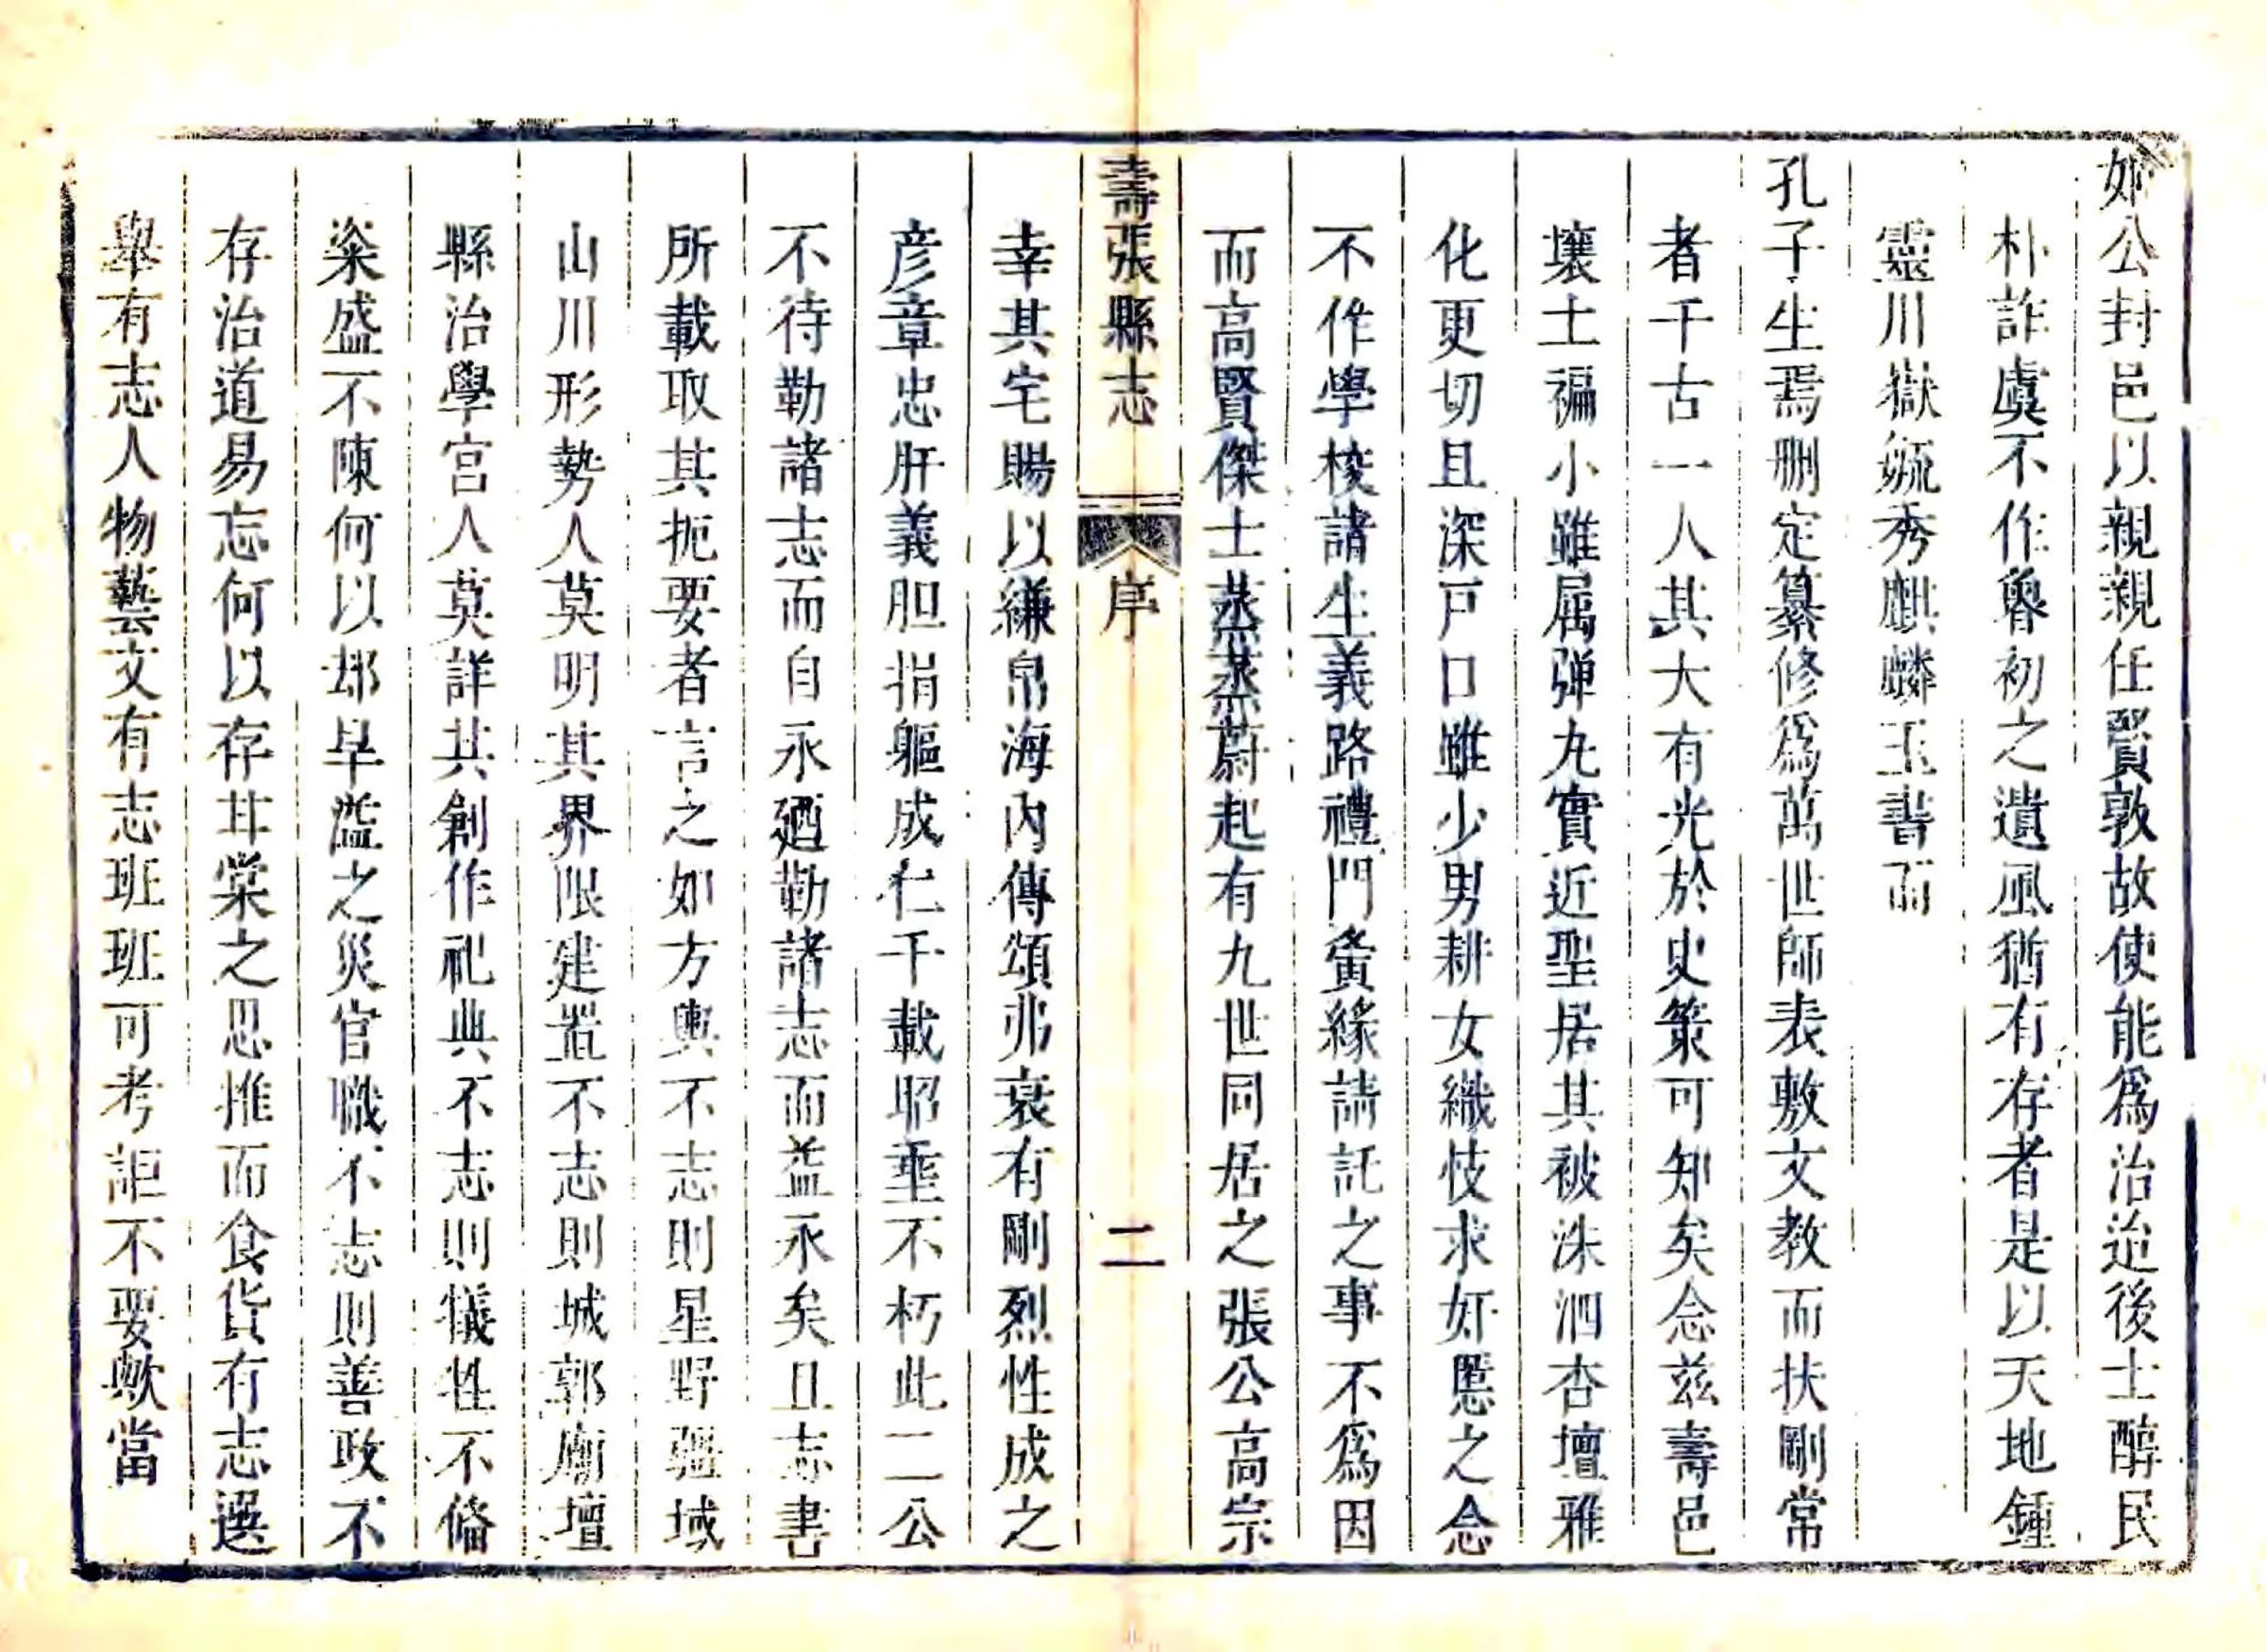 如公封邑以親親任賢敦故使能爲治迨後士醇民
朴詐虞不作魯初之遺風猶有存者是以天地鍾
靈川嶽毓秀麒麟玉書而
孔子生焉刪定纂修爲萬世師表敷文教而扶剛常
者千古一人其大有光於史策可知矣念茲壽邑
壤土褊小雖屈弹九實近聖居其被洙泗杏壇雅
化更切且深戸口雖少男耕女織忮求奸慝之念
不作學校諸生義路禮門夤緣請託之事不爲因
而高賢傑士蒸蒸蔚起有九世同居之張公高宗
壽張縣志 序 二
幸其宅賜以縑帛海內傳頌弗衰有剛烈性成之
彦章忠肝義胆捐軀成仁千載昭垂不朽此二公
不待勒諸志而自永廼勒諸志而益永矣且志書
所載取其扼要者言之如方輿不志則星野疆域
山川形勢人莫明其界限建置不志則城郭廟壇
縣治學宮人莫詳其創作祀典不志則犧牲不備
粢盛不陳何以却旱溢之災官職不志則善政不
存治道易忘何以存甘棠之思推而食貨有志選
舉有志人物藝文有志班班可考詎不要歟當